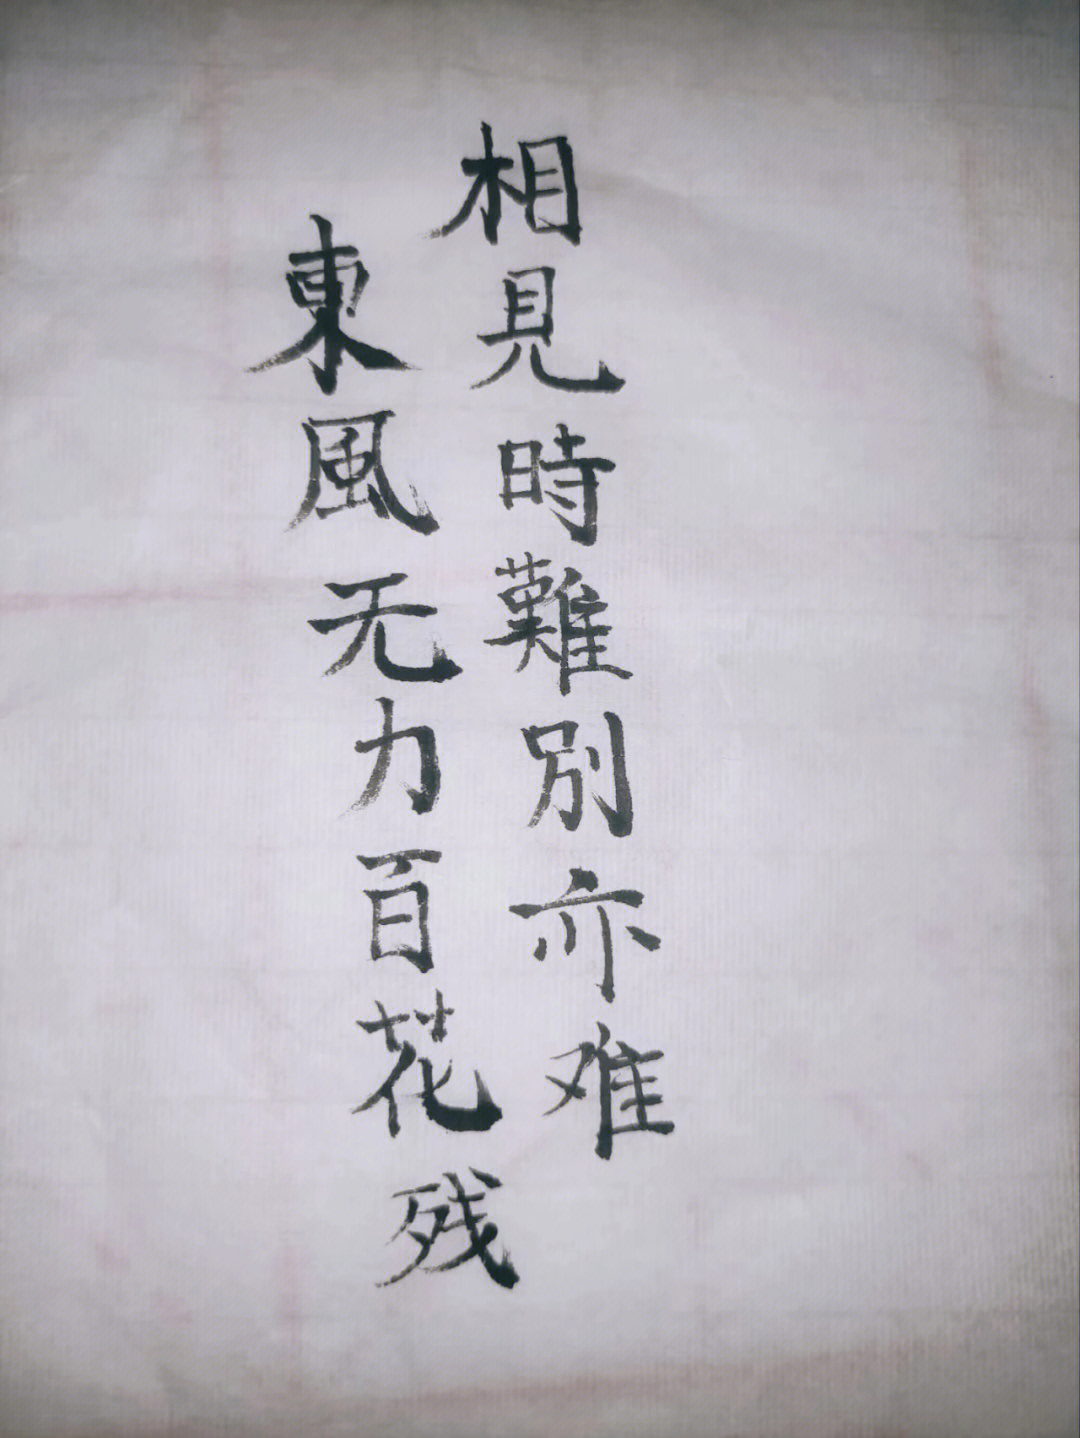 相見時難別亦难
東風无力百花残